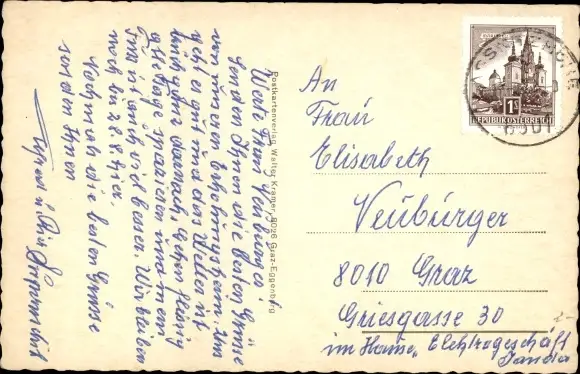 Werte Frau Neuburger!
senden Ihnen die besten Grüsse
von unserem Erholungsheim. Uns
geht es gut und das Wetter ist
auch ganz danach. Gehen fleißig
alle Tage spazieren und mein
ist auch viel besser. Wir bleiben
noch bis 28. hier.
Nochmals die besten Grüsse
senden Ihnen
Postkartenverlag Walter Kramer, 8026 Graz-Eggenberg
An
Frau
Elisabeth
Neuburger
8010 Graz
Griesgasse 30
im Hause, Elektrogeschäft
Janda
1S
REPUBLIK ÖSTERREICH